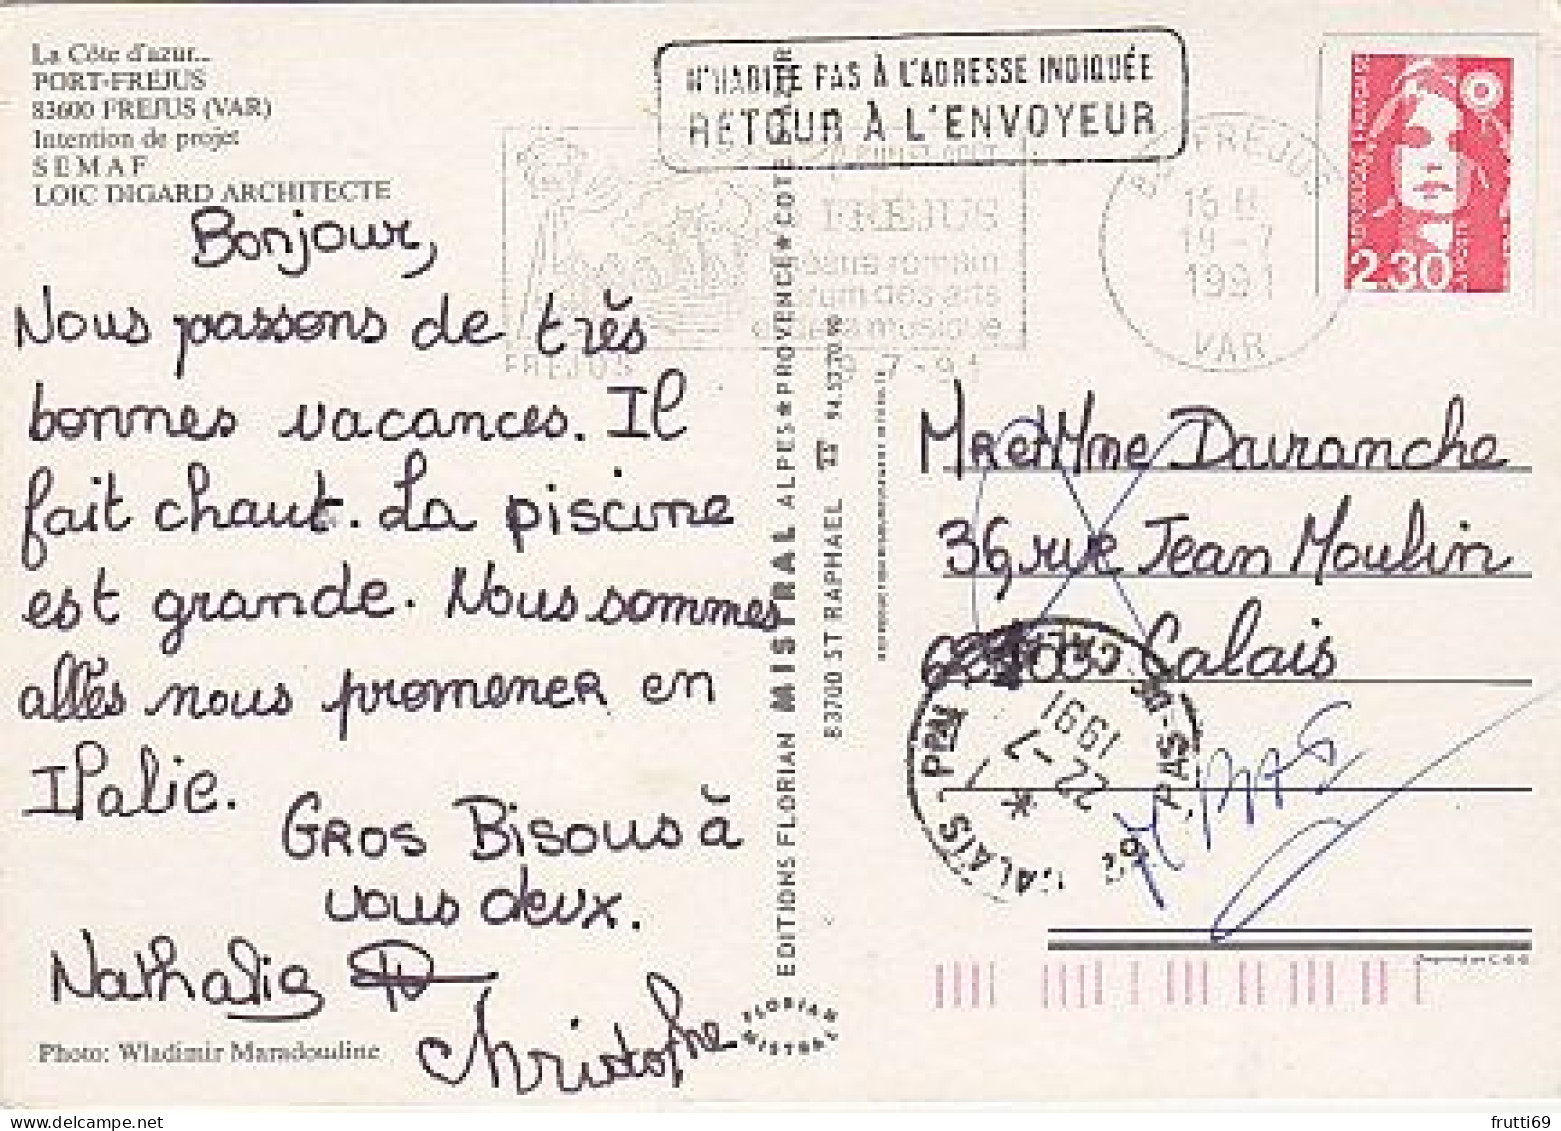 La Côte d'azur...
PORT-FREJUS
83600 FREJUS (VAR)
Intention de projet
SEMAF
LOIC DIGARD ARCHITECTE
Bonjour,
Nous passons de très
bonnes vacances. Il
fait chaut. La piscine
est grande. Nous sommes
allés nous promener en
Italie.
Gros Bisous à
vous deux.
Nathalie
Christophe
Photo: Wladimir Maradoudine
N'HABITE PAS À L'ADRESSE INDIQUÉE
RETOUR À L'ENVOYEUR
FRÉJUS
romain
forum des arts
et de la musique
FREJUS
EDITIONS FLORIAN MISTRAL ALPES★PROVENCE★COTE D'AZUR
83700 ST RAPHAEL
FLORIAN
MISTRAL
FREJUS
19-7
1991
VAR
2.30
Mr et Mme Davranche
36, rue Jean Moulin
Calais
CALAIS PPAL
PAS-DE-CALAIS
22-7
1991
frutti69